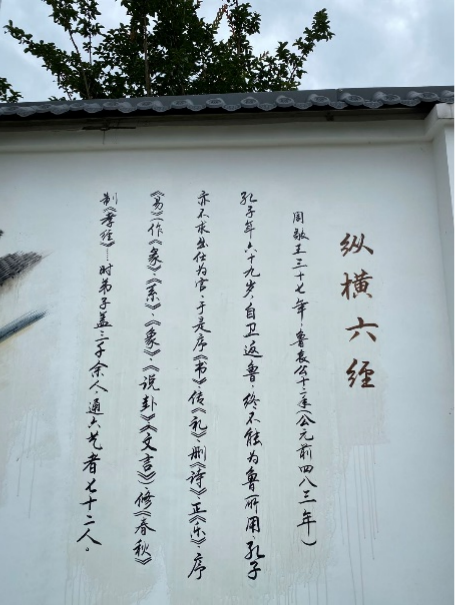 纵横六经
周敬王三十七年,鲁哀公十二年(公元前四八三年)
孔子年六十九岁,自卫返鲁,终不能为鲁所用,孔子
亦不求出仕为官,于是序《书》、传《礼》、删《诗》、正《乐》、序
《易》(作《彖》、《系》、《象》、《说卦》、《文言》)、修《春秋》
制《孝经》一时弟子盖三千余人,通六艺者七十二人。